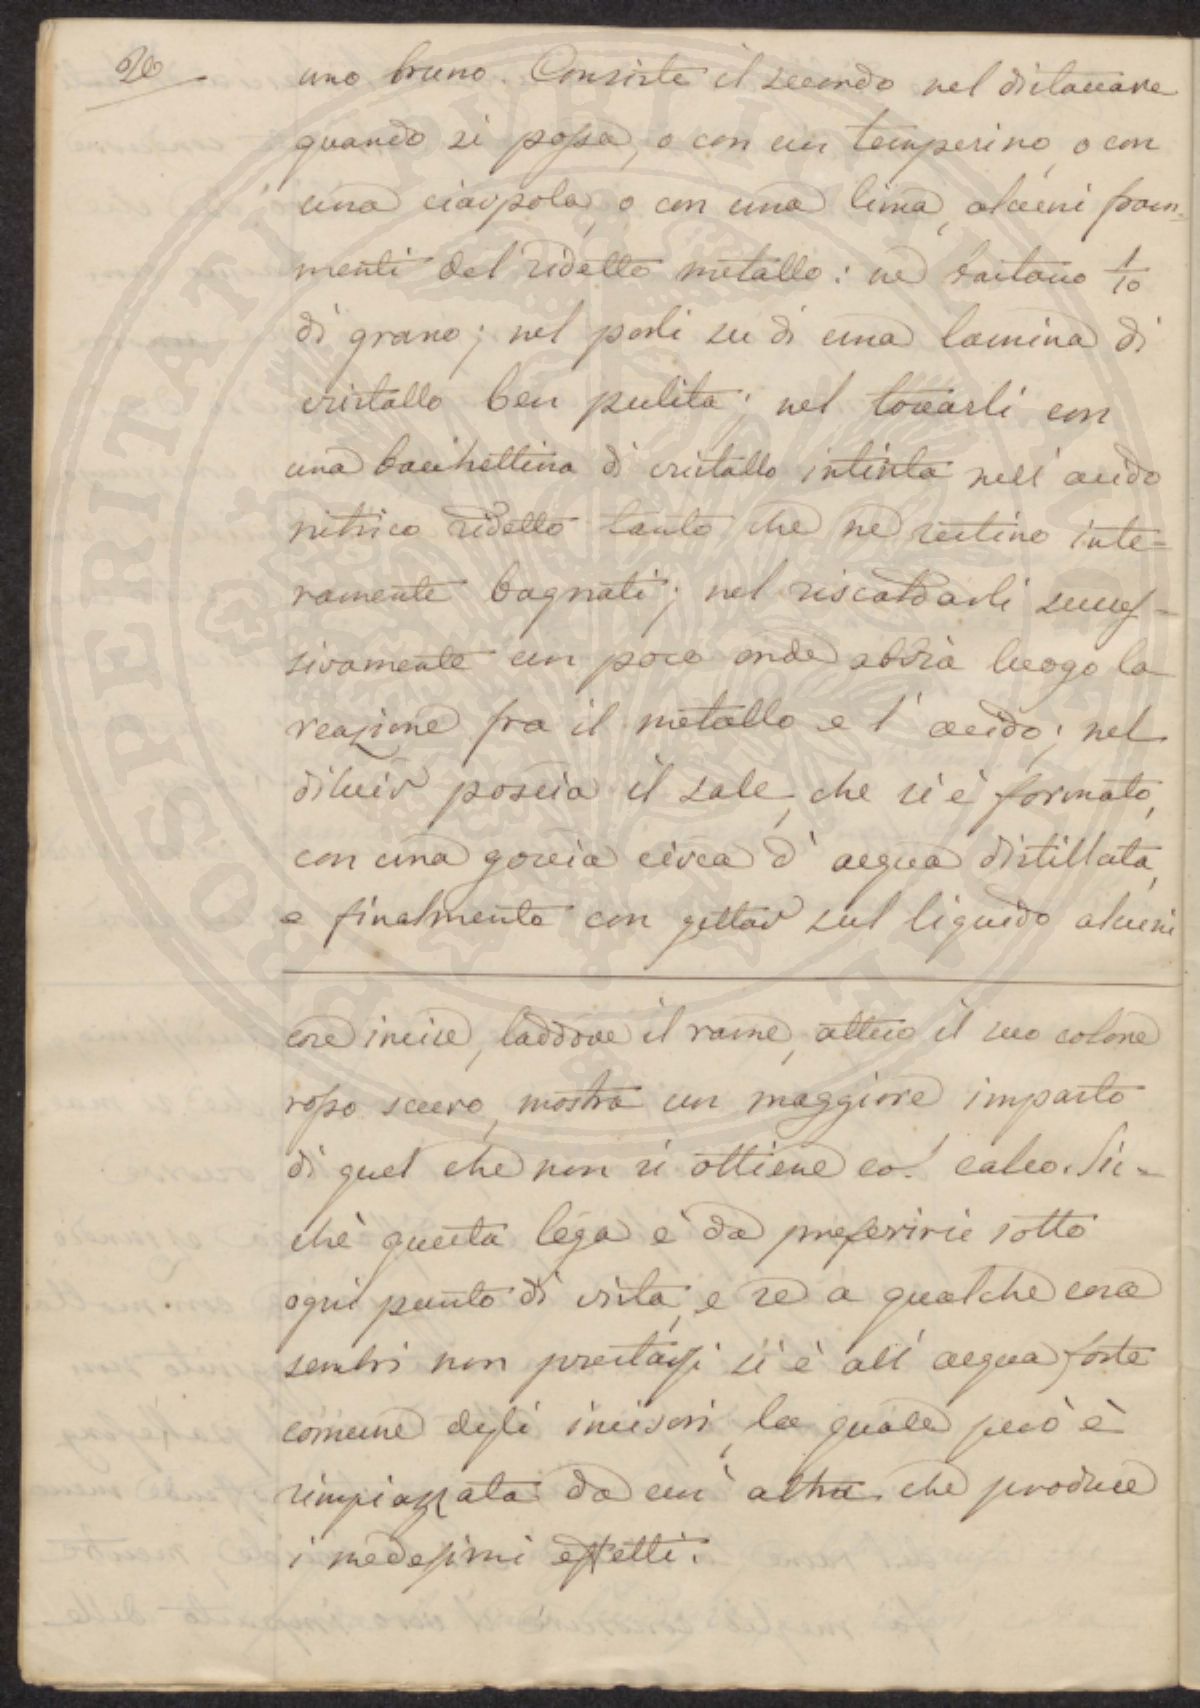 26
uno bruno. Consiste il secondo nel distaccare
quando si possa, o con un temperino, o con
una ciappola, o con una lima, alcuni fram-
menti del ridetto metallo: ne bastano 1/10
di grano; nel porli su di una lamina di
cristallo ben pulita; nel toccarli con
una bacchettina di cristallo intinta nell' acido
nitrico ridetto tanto che ne restino inte-
ramente bagnati; nel riscaldarli succes-
sivamente un poco onde abbia luogo la
reazione fra il metallo e l' acido; nel
diluir poscia il sale, che si è formato,
con una goccia circa d' acqua distillata,
e finalmente con gettar sul liquido alcuni
cose incise, laddove il rame, atteso il suo colore
rosso scuro, mostra un maggiore impasto
di quel che non si ottiene col calco. Sic-
chè questa lega è da preferirsi sotto
ogni punto di vista, e se a qualche cosa
sembri non prestarsi si è all' acqua forte
comune degli incisori, la quale però è
rimpiazzata da un' altra che produce
i medesimi effetti.
PROSPERITATI PUBLICAE